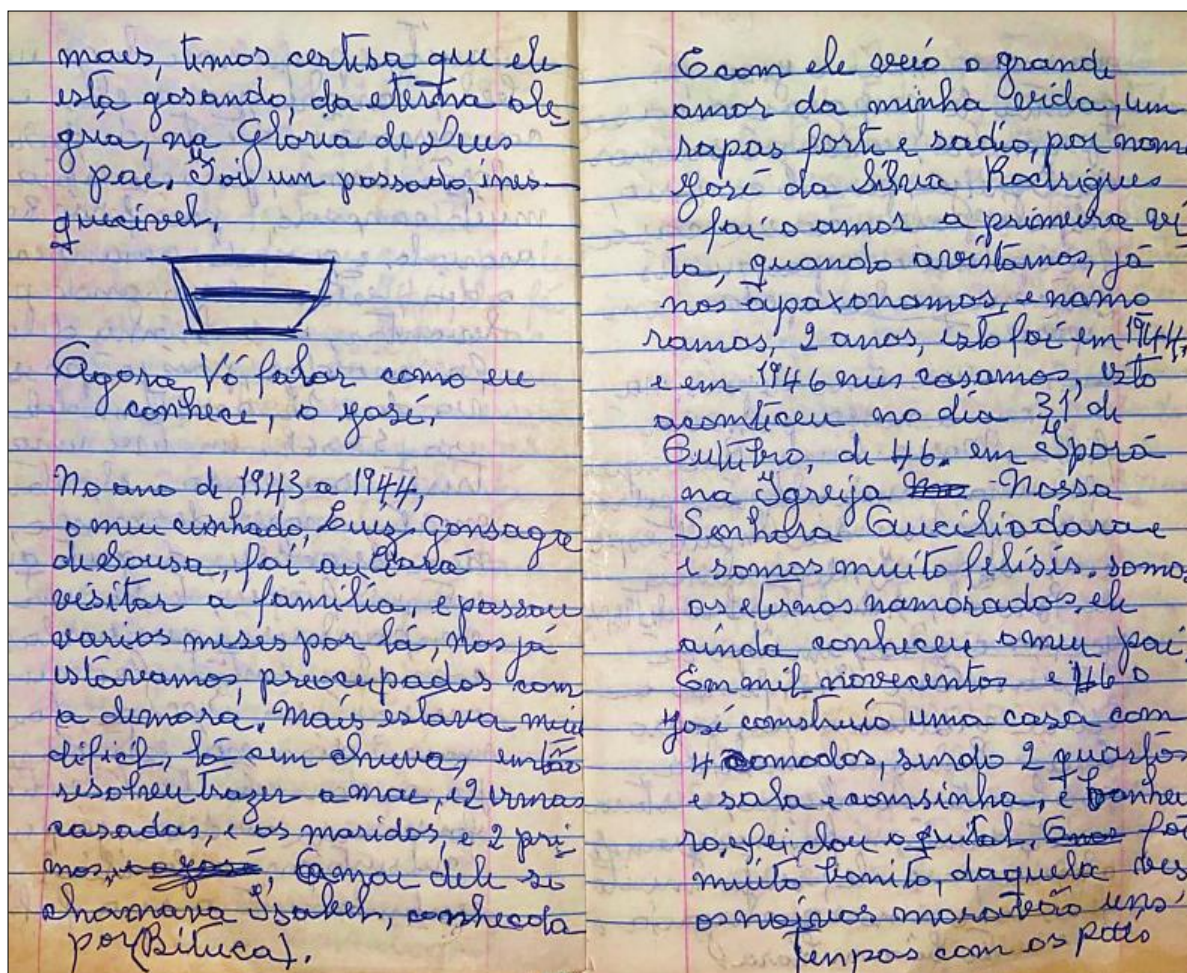 mais, temos certisa que ele
está gosando, da eterna ale
gria, na Glória de Deus
pai. Foi um passado, ines-
quecivel.
Agora, Vó falar como eu
conheci, o José.
No ano de 1943 a 1944,
o meu cunhado, Luiz Gonsaga
de Sousa, foi au Ceará
visitar a familia, e passou
varios meses por lá, nos já
istávamos, preocupados com
a demora. Mais estava muit
dificil, lá sem chuva, então
resolveu trazer a mae, e 2 irmas
casadas, e os maridos, e 2 pri
mos, A mae dele si
chamava Izabel, conhecida
por (Bituca).
E com ele veio o grande
amor da minha vida, um
rapas forte e sadio, por nom
José da Silva Rodrigues
foi o amor a primeira vi
ta, quando avistamos, já
nós apaxonamos, e namo
ramos, 2 anos, isto foi em 1944,
e em 1946 nus casamos, isto
aconticeu no dia 31 de
Outubro, de 46. em Iporá
na Igreja Nossa
Senhora Auciliadora e
i somos muito felisis. somos
os eternos namorados, ele
ainda conheceu o meu pai,
Em mil novecentos e 46 o
José construio uma casa com
4 comodos, sendo 2 quartos
e sala e comsinha, e banhei
ro, e fei chou o quital, foi
muito bonito, daquela ves
os noivos moravão uns
tenpos com os pais